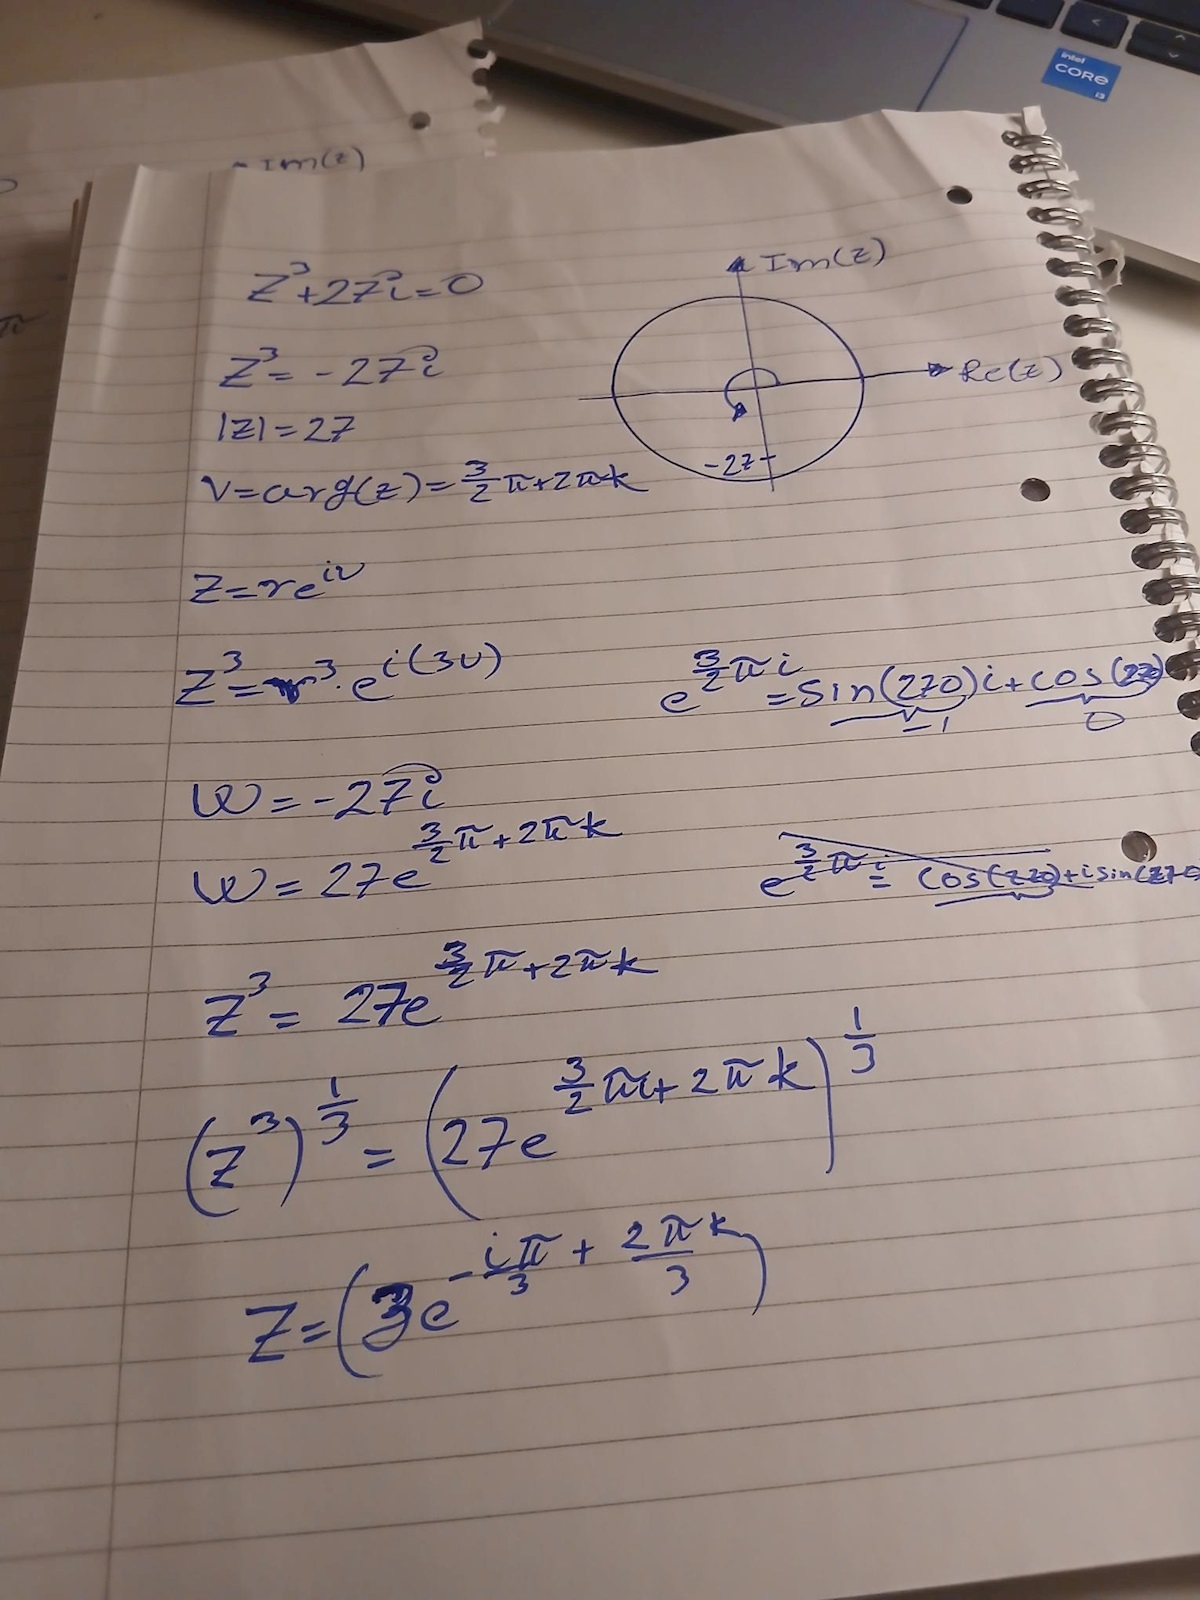 intel CORE i3
Im(z)
π
z³+27i=0
Im(z)
Re(z)
-27
z³=-27i
|z|=27
v=arg(z)=3/2 π+2πk
z=re^(iv)
z³=r³·e^(i(3v))
e^(3/2 πi)=sin(270)i+cos(270)
-1 0
w=-27i
w=27e^(3/2 π+2πk)
e^(3/2 πi)=cos(270)+isin(270
z³=27e^(3/2 π+2πk)
(z³)^(1/3)=(27e^(3/2 πi+2πk))^(1/3)
z=(3e^(-iπ/3+2πk/3))